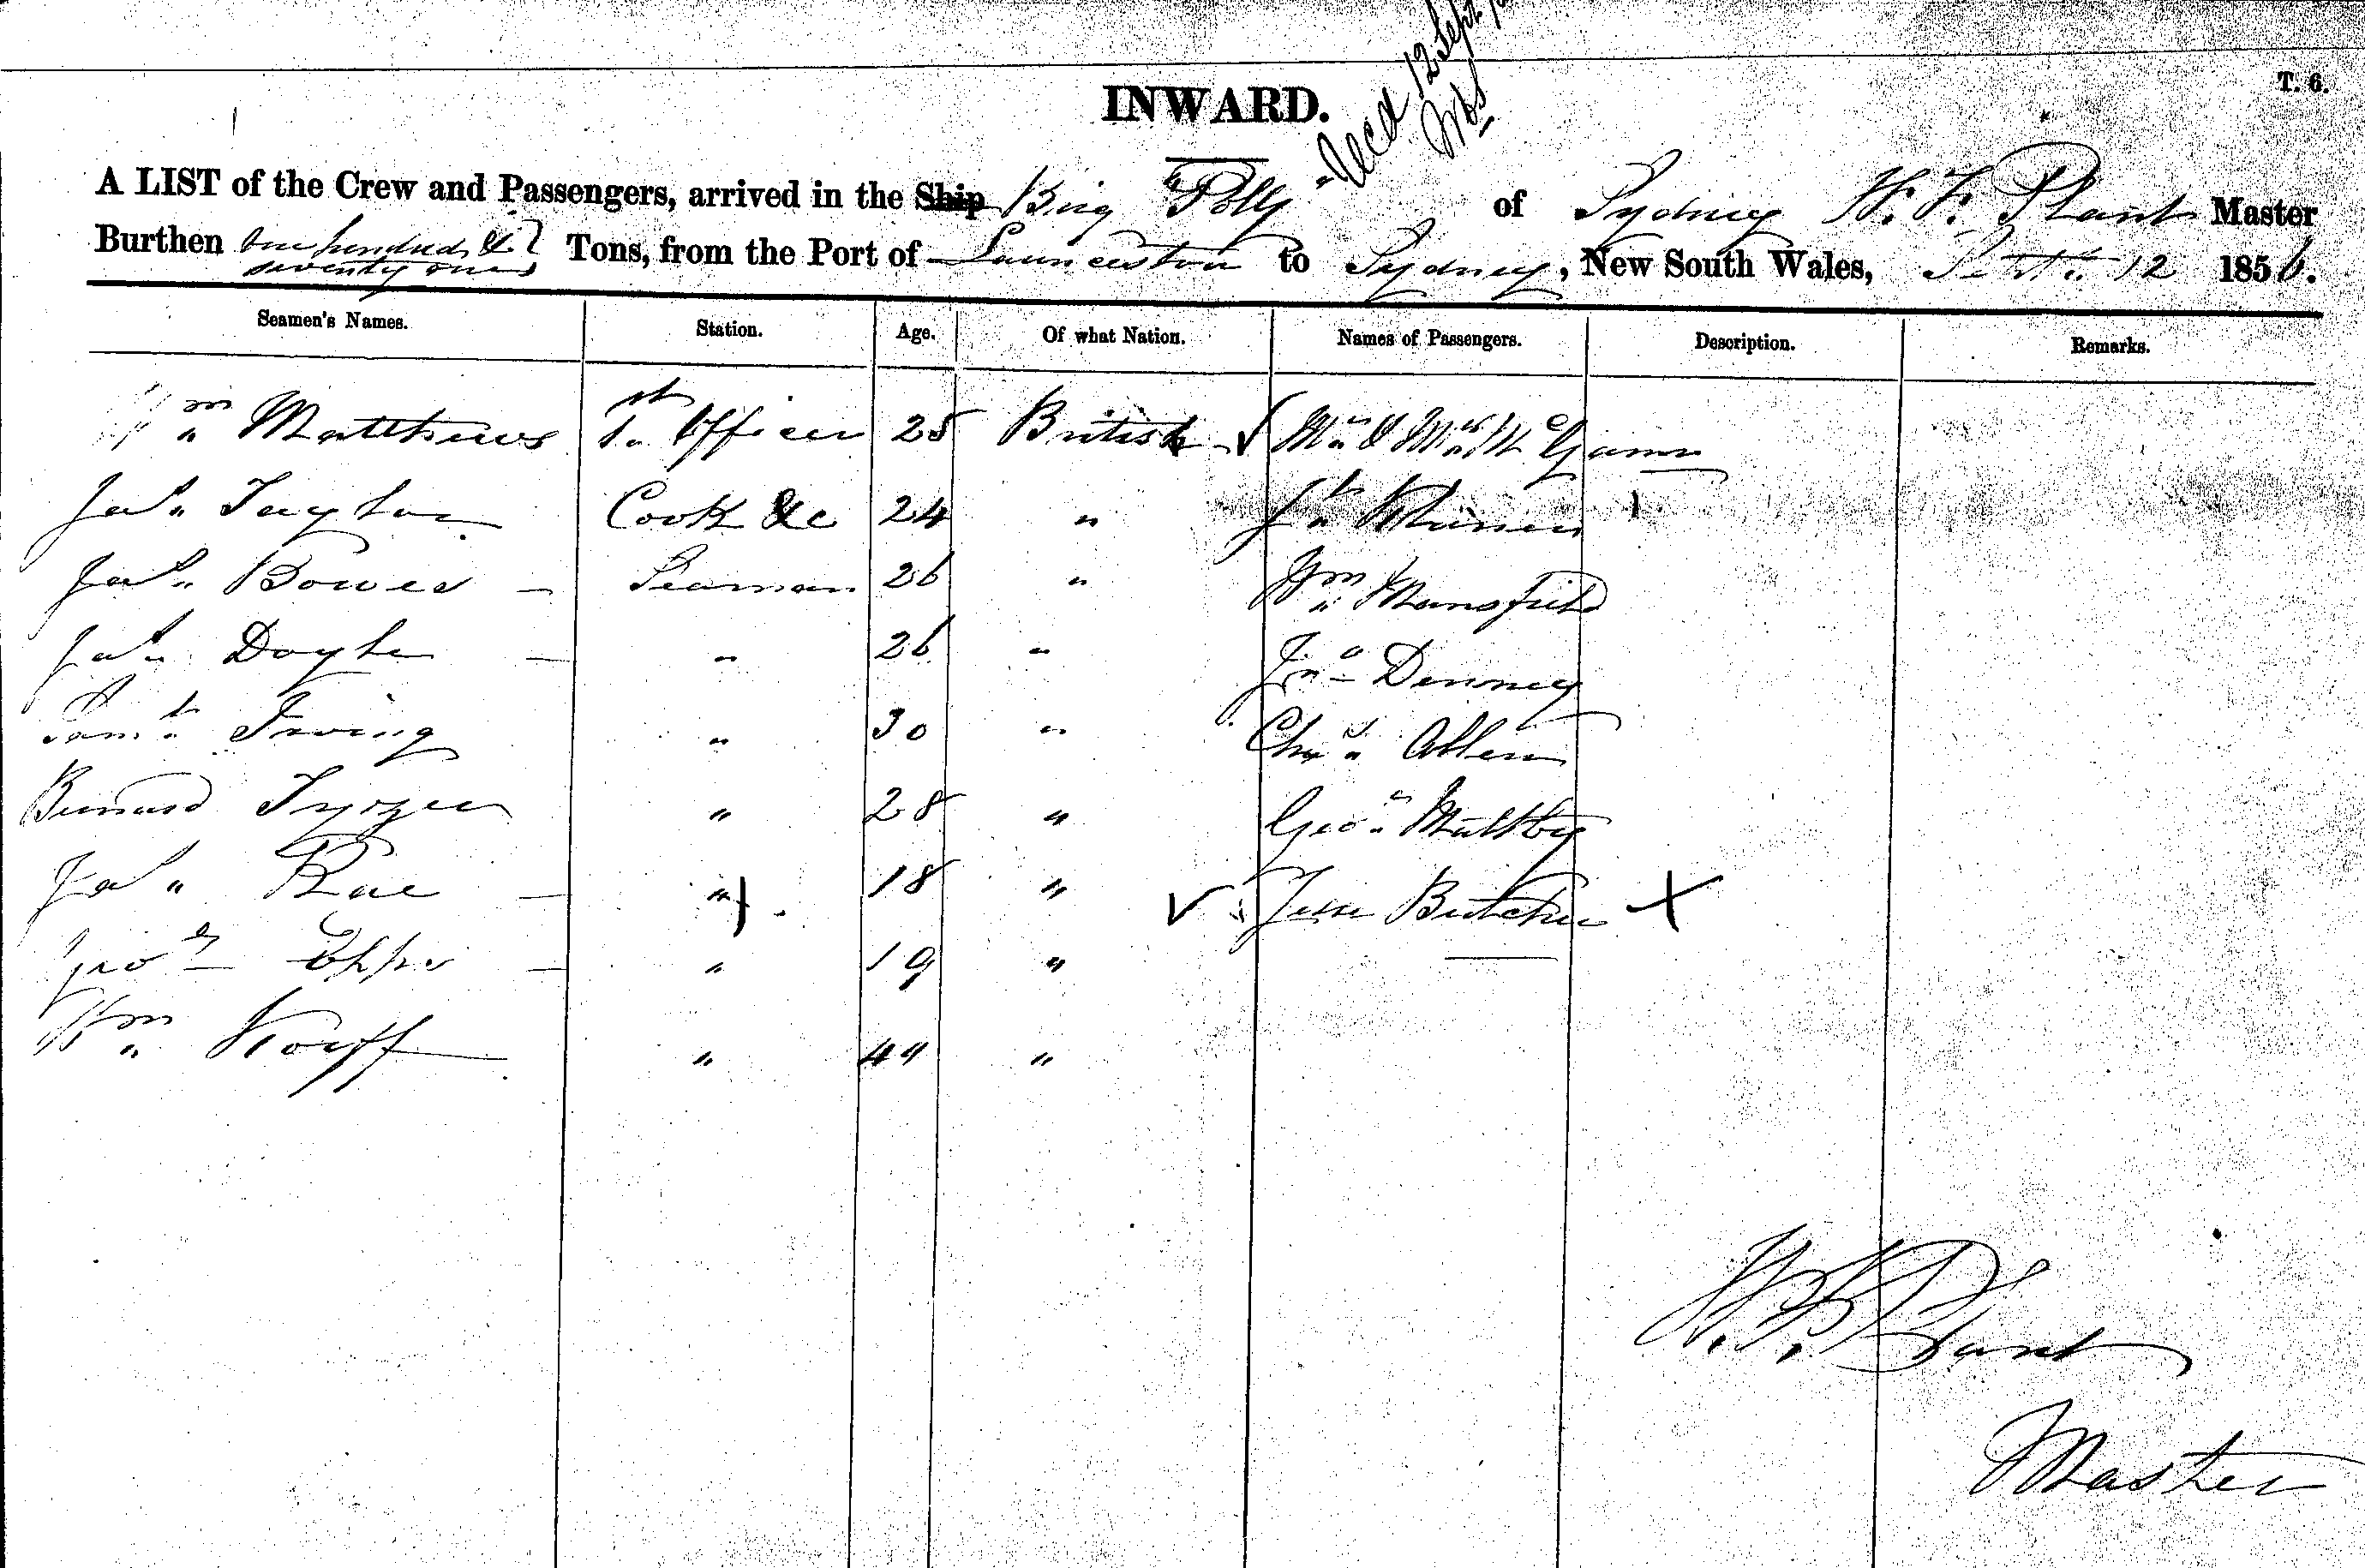 T. 6.
INWARD.
Recd 12 Sept
A LIST of the Crew and Passengers, arrived in the Ship Brig "Polly" of Sydney W. F. Plant Master
Burthen One hundred & seventy one Tons, from the Port of Launceston to Sydney, New South Wales, Septr. 12 1856.
Seamen's Names. Station. Age. Of what Nation. Names of Passengers. Description. Remarks.
Wm Matthews 1st Officer 25 British Mr & Mrs
Jas Taylor Cook &c 24 "
Jas Bowes Seaman 26 " Wm Mansfield
Jas Doyle " 26 " Jno Denney
Saml Irving " 30 " Chas Allen
Bernard " 28 " Geo Maltby
Jas Rae " 18 " Jesse Butcher X
Geo Epps " 19 "
Wm Korff " "
W. F. Plant
Master